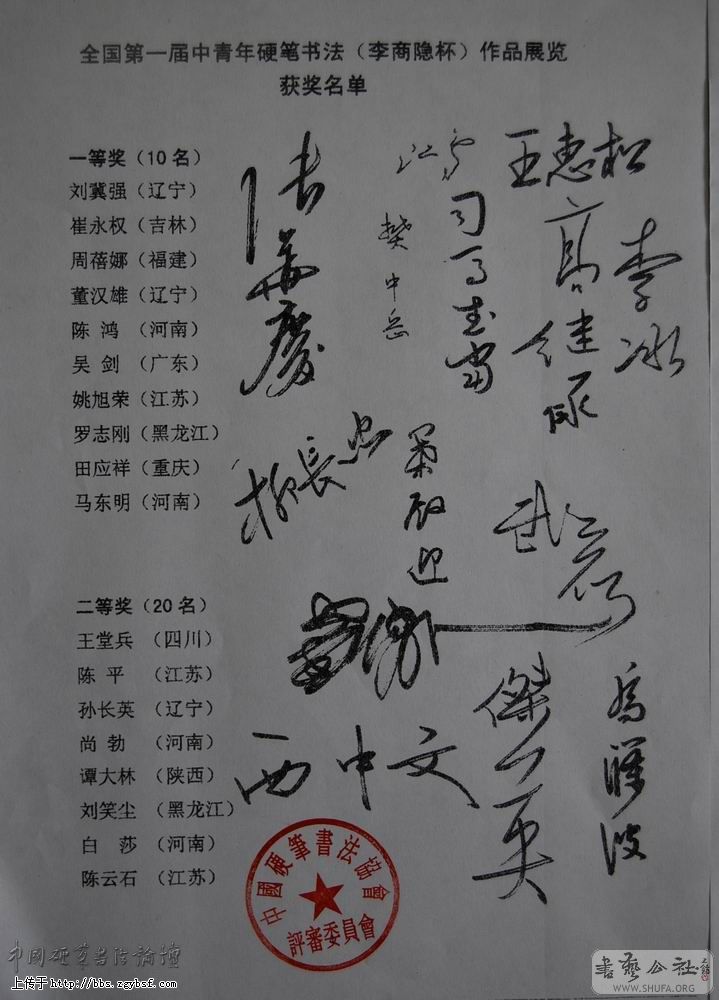 全国第一届中青年硬笔书法（李商隐杯）作品展览
获奖名单
一等奖（10名）
刘冀强（辽宁）
崔永权（吉林）
周蓓娜（福建）
董汉雄（辽宁）
陈 鸿（河南）
吴 剑（广东）
姚旭荣（江苏）
罗志刚（黑龙江）
田应祥（重庆）
马东明（河南）
二等奖（20名）
王堂兵 （四川）
陈 平 （江苏）
孙长英 （辽宁）
尚 勃 （河南）
谭大林 （陕西）
刘笑尘 （黑龙江）
白 莎 （河南）
陈云石 （江苏）
张华庆
樊中岳
司马武当
王惠松
高继承
李冰
柳長忠
西中文
中國硬筆書法協會
評審委員會
中国硬笔书法论坛
上传于 http://bbs.zgybsf.com
書藝公社
WWW.SHUFA.ORG